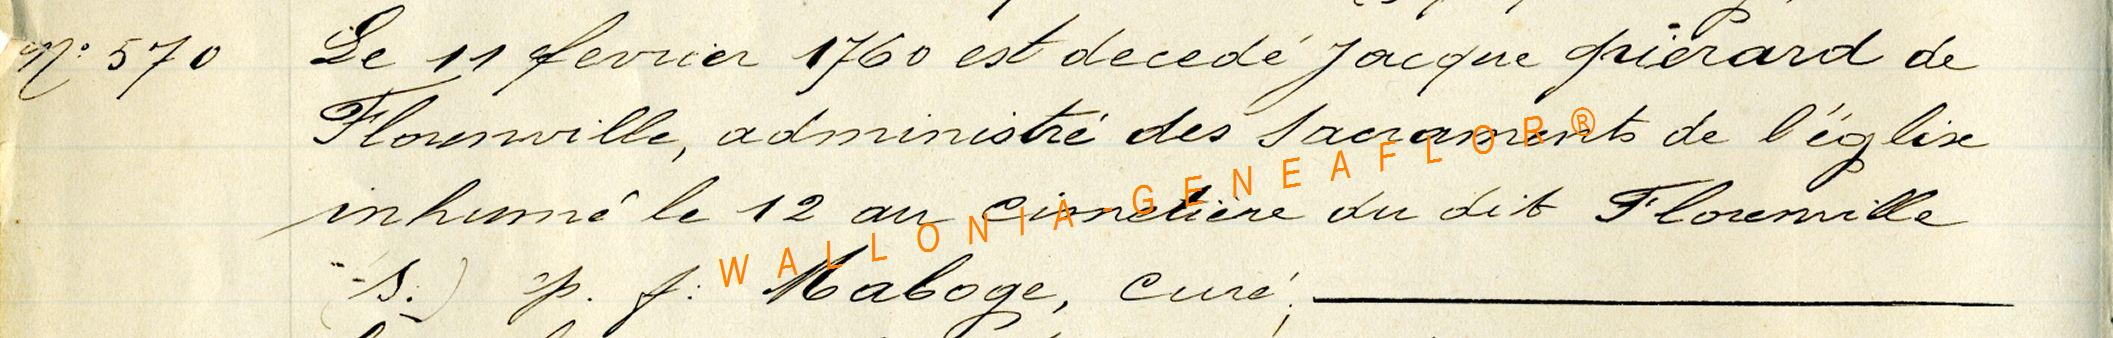 N° 570 Le 11 fevrier 1760 est decedé Jacque pierard de
Florenville, administré des Sacraments de l'église
inhumé le 12 au cimetière du dit Florenville
(S.) p. f. Maboge, curé.
WALLONIA-GENEAFLOR®